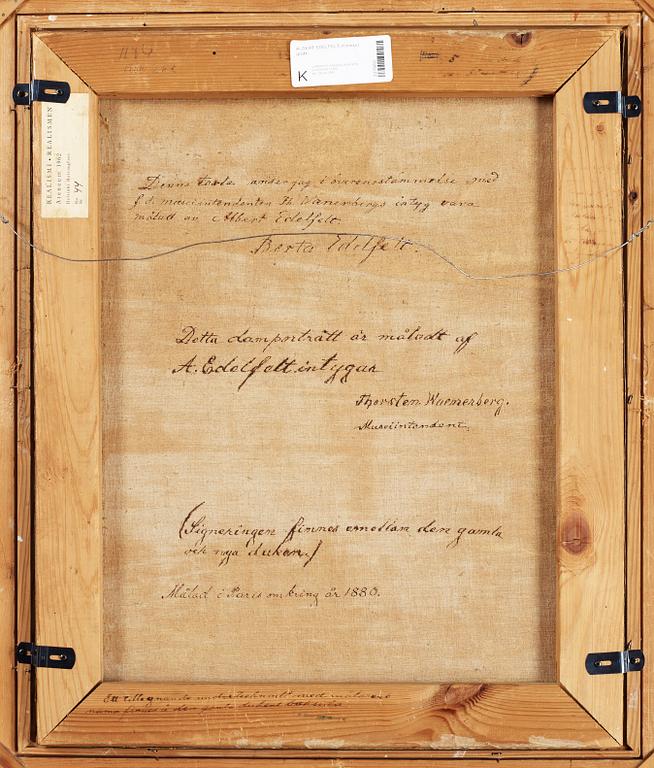 K
REALISMI • REALISMEN
Ateneum 1962
44
Denna tavla anser jag i överensstämmelse med
f.d. museiintendenten Th. Wænerbergs intyg vara
målad av Albert Edelfelt.
Berta Edelfelt.
Detta damporträtt är måladt af
A. Edelfelt intygar
Thorsten Waenerberg.
Museiintendent.
(Signeringen finnes emellan den gamla
och nya duken.)
Målad i Paris omkring år 1880.
Ett tillegnande undertecknadt med målarens
namn finnes å den gamla dukens baksida